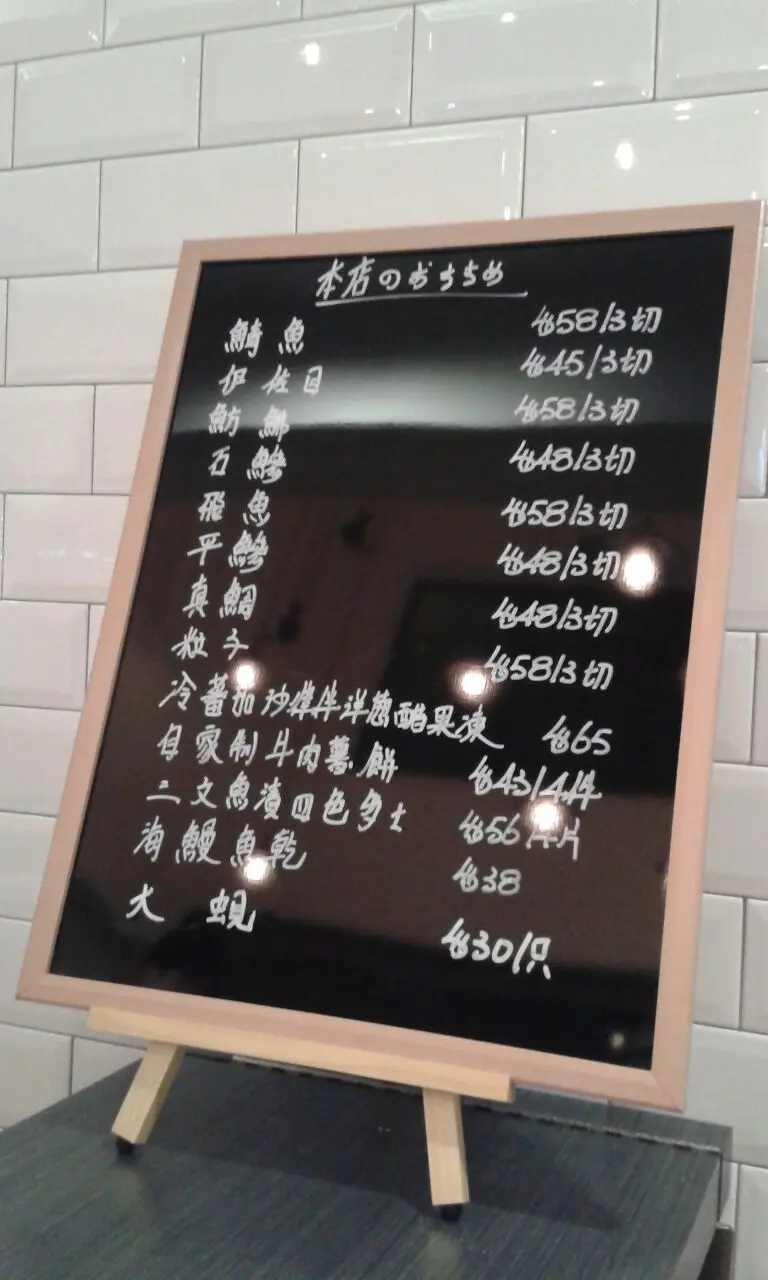 本店のおすすめ
鯖魚 $58/3切
伊佐目 $45/3切
魴鮄 $58/3切
石鰺 $48/3切
飛魚 $58/3切
平鰺 $48/3切
真鯛 $48/3切
粒子 $58/3切
冷蕃茄沙律伴洋葱醋果凍 $65
自家制牛肉薯餅 $43/4件
三文魚漬四色多士 $56/4片
海鰻魚乾 $38
大蜆 $30/只